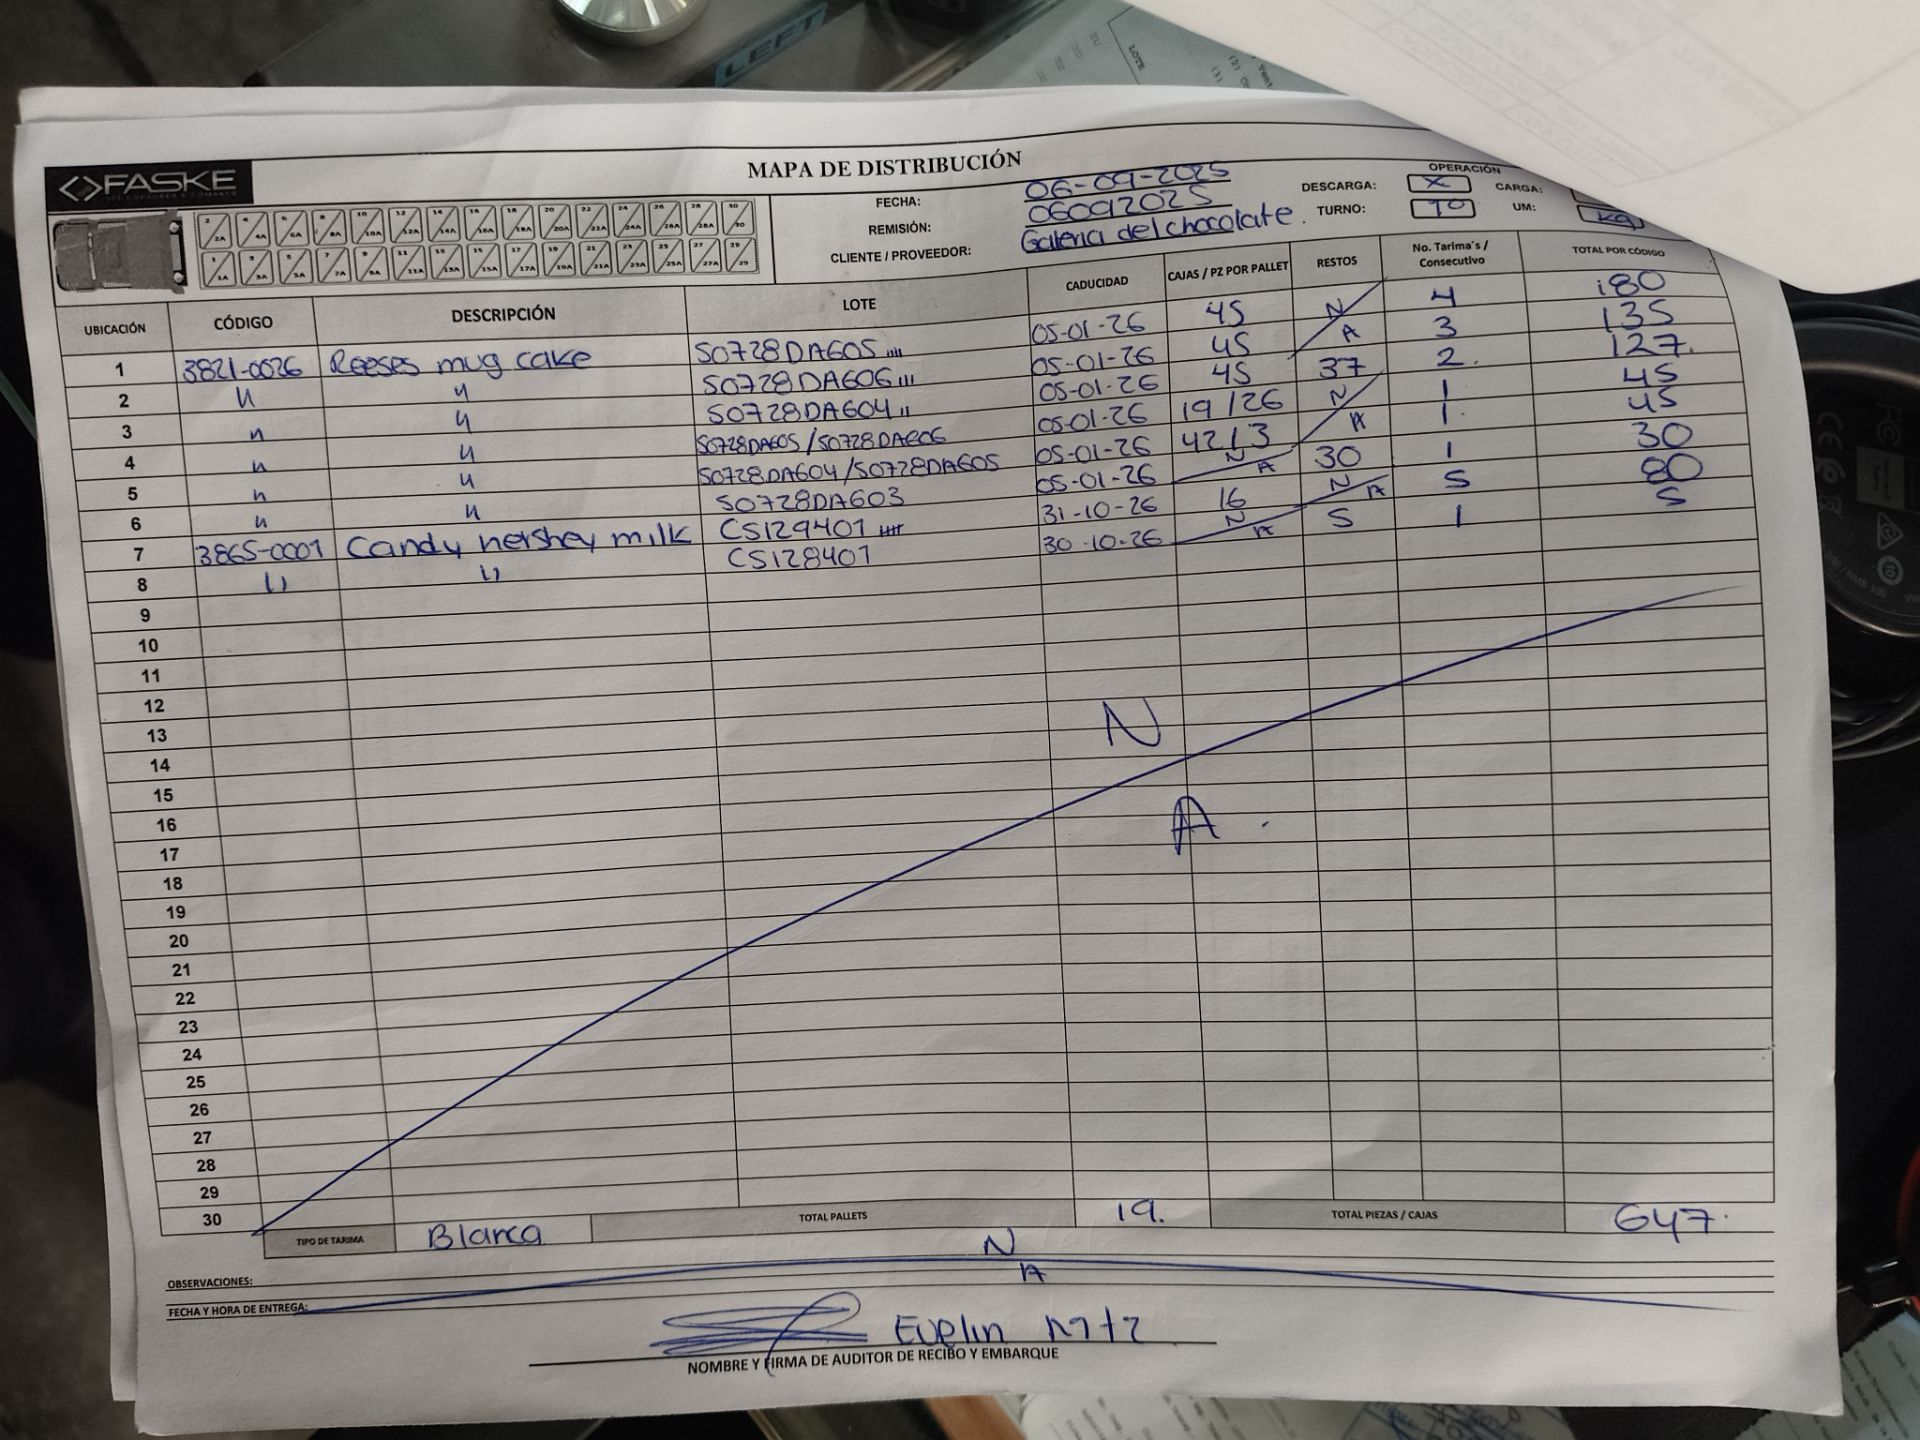 MAPA DE DISTRIBUCIÓN
FASKE
FECHA: 06-09-2025
REMISIÓN: 06092025
CLIENTE / PROVEEDOR: Galeria del chocolate.
OPERACIÓN
DESCARGA: X CARGA:
TURNO: 1º UM: Kg
UBICACIÓN CÓDIGO DESCRIPCIÓN LOTE CADUCIDAD CAJAS / PZ POR PALLET RESTOS No. Tarima's / Consecutivo TOTAL POR CÓDIGO
1 3821-0026 Reeses mug cake 50728DA605 05-01-26 45 N 4 180
2 " " 50728DA606 05-01-26 45 A 3 135
3 " " 50728DA604 05-01-26 45 37 2. 127.
4 " " 50728DA605/50728DA606 05-01-26 19/26 N 1 45
5 " " 50728DA604/50728DA605 05-01-26 42/3 A 1. 45
6 " " 50728DA603 05-01-26 N A 30 1 30
7 3865-0001 Candy hershey milk CS129401 31-10-26 16 N A 5 80
8 " " CS128401 30-10-26 N A 5 1 5
9
10
11
12
13 N
14
15
16 A
17
18
19
20
21
22
23
24
25
26
27
28
29
30
TIPO DE TARIMA Blanca TOTAL PALLETS 19. TOTAL PIEZAS / CAJAS 647.
OBSERVACIONES: N
FECHA Y HORA DE ENTREGA: A
Evelin Mtz
NOMBRE Y FIRMA DE AUDITOR DE RECIBO Y EMBARQUE
LEFT
LOTE